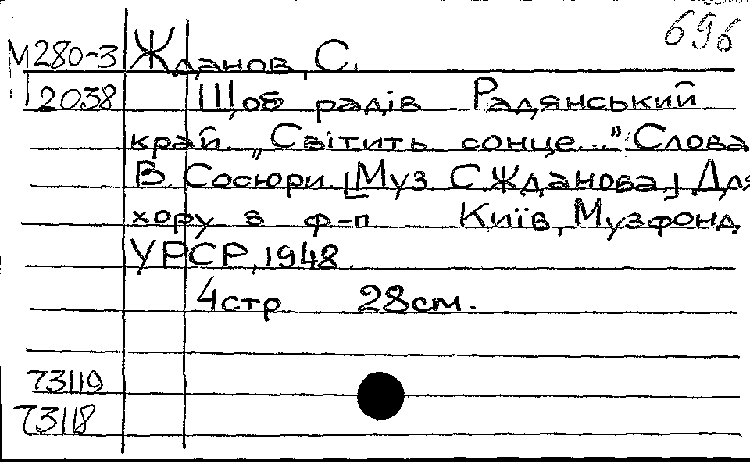 696
М280-3 Жданов, С.
2038 Щоб радів Радянський
край. „Світить сонце..." Слова
В. Сосюри. [Муз. С. Жданова.] Для
хору з ф-п. Київ, Музфонд
УРСР, 1948.
4 стр. 28 см.
73119
73118